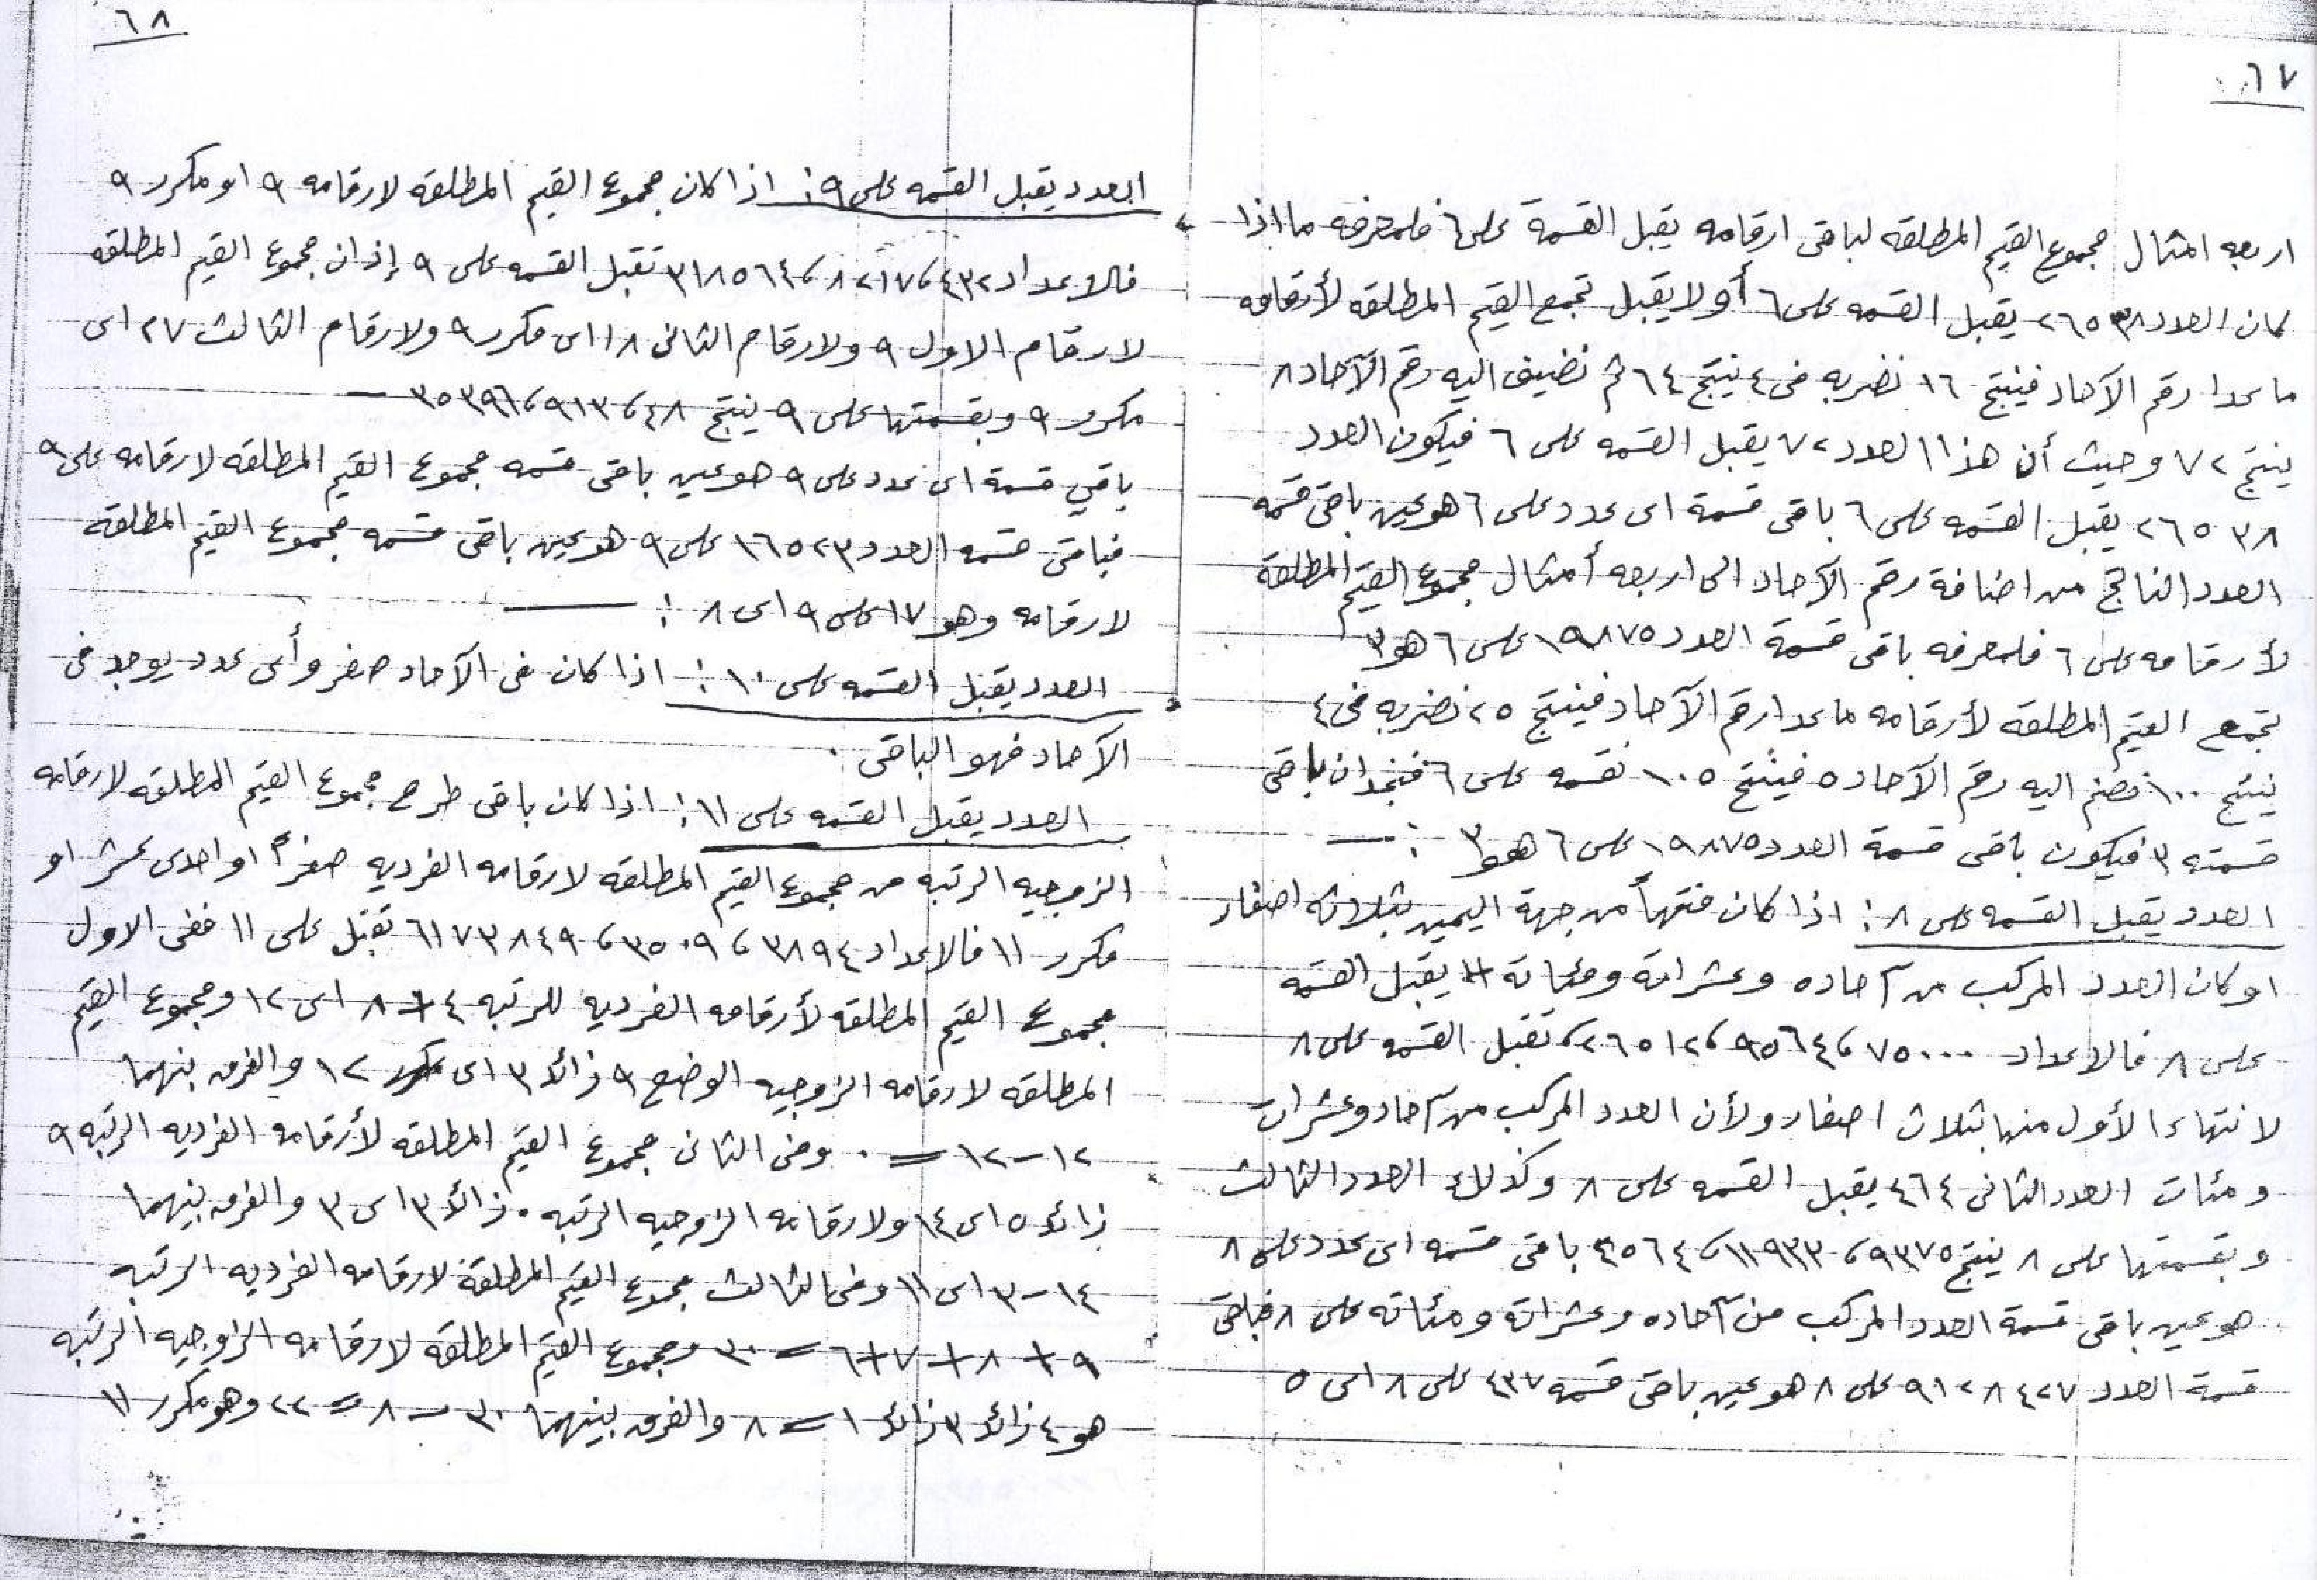 ٦٧
اربعه امثال مجموع القيم المطلقه لباقى ارقامه يقبل القسمة على ٦ فلمعرفه ما اذا
كان العدد ٢٦٥٣٨ يقبل القسمه على ٦ أو لا يقبل تجمع القيم المطلقه لأرقامه
ما عدا رقم الآحاد فينتج ١٦ نضربه فى ٤ ينتج ٦٤ ثم نضيف اليه رقم الآحاد ٨
ينتج ٧٢ وحيث أن هذا العدد ٧٢ يقبل القسمه على ٦ فيكون العدد
٢٦٥٣٨ يقبل القسمه على ٦ باقى قسمة اى عدد على ٦ هو عين باقى قسمه
العدد الناتج من اضافة رقم الآحاد الى اربعه أمثال مجموع القيم المطلقة
لأرقامه على ٦ فلمعرفه باقى قسمة العدد ١٩٨٧٥ على ٦ هو ٣
تجمع القيم المطلقه لأرقامه ما عدا رقم الآحاد فينتج ٢٥ نضربه فى ٤
ينتج ١٠٠ نضم اليه رقم الآحاد ٥ فينتج ١٠٥ نقسمه على ٦ فنجد ان باقى
قسمته ٣ فيكون باقى قسمة العدد ١٩٨٧٥ على ٦ هو ٣ : —
العدد يقبل القسمه على ٨ : اذا كان منتهياً من جهة اليمين بثلاثه اصفار
او كان العدد المركب من آحاده وعشراته ومئاته يقبل القسمه
على ٨ فالاعداد ٧٥٠٠٠ ، ٩٥٤٦٤ ، ٢٦٥١٢ ، تقبل القسمه على ٨
لانتهاء الأول منها بثلاث اصفار ولأن العدد المركب من آحاد وعشرات
ومئات العدد الثانى ٤٦٤ يقبل القسمه على ٨ وكذلك العدد الثالث
وبقسمتها على ٨ ينتج ٩٣٧٥ ، ١١٩٣٣ ، ٤٥٦٤ باقى قسمه اى عدد على ٨
هو عين باقى قسمة العدد المركب من آحاده وعشراته ومئاته على ٨ فباقى
قسمة العدد ٩١٢٨٤٢٧ على ٨ هو عين باقى قسمه ٤٣٧ على ٨ اى ٥
٦٨
العدد يقبل القسمه على ٩ : اذا كان مجموع القيم المطلقه لارقامه ٩ او مكرر ٩
فالاعداد ٤٣٢ ، ٨٢١٧ ، ٣١٨٥٦٤ تقبل القسمه على ٩ إذ ان مجموع القيم المطلقه
لارقام الاول ٩ ولارقام الثانى ١٨ اى مكرر ٩ ولارقام الثالث ٢٧ اى
مكرر ٩ وبقسمتها على ٩ ينتج ٤٨ ، ٩١٣ ، ٣٥٣٩٦ —
باقي قسمة اى عدد على ٩ هو عين باقى قسمه مجموع القيم المطلقه لارقامه على ٩
فباقى قسمه العدد ١٦٥٢٣ على ٩ هو عين باقى قسمه مجموع القيم المطلقه
لارقامه وهو ١٧ على ٩ اى ٨ : —
العدد يقبل القسمه على ١٠ : اذا كان فى الآحاد صفر وأى عدد يوجد فى
الآحاد فهو الباقى .
العدد يقبل القسمه على ١١ : اذا كان باقى طرح مجموع القيم المطلقه لارقامه
الزوجيه الرتبه من مجموع القيم المطلقه لارقامه الفرديه صفراً او احدى عشر او
مكرر ١١ فالاعداد ٣٨٩٤ ، ٣٥٠٩ ، ٦١٧٣٨٤٩ تقبل على ١١ ففى الاول
مجموع القيم المطلقه لأرقامه الفرديه للرتبه ٤ + ٨ اى ١٢ ومجموع القيم
المطلقه لارقامه الزوجيه الوضع ٩ زائد ٣ اى ١٢ والفرق بنهما
١٢ – ١٢ = ٠ وفى الثانى مجموع القيم المطلقه لأرقامه الفرديه الرتبه ٩
زائد ٥ اى ١٤ ولارقامه الزوجيه الرتبه ٠ زائد ٣ اى ٣ والفرق بينهما
١٤ – ٣ اى ١١ وفى الثالث مجموع القيم المطلقة لارقامه الفرديه الرتبه
٩ + ٨ + ٧ + ٦ = ٣٠ ومجموع القيم المطلقه لارقامه الزوجيه الرتبه
هو ٤ زائد ٣ زائد ١ = ٨ والفرق بينهما ٣٠ – ٨ = ٢٢ وهو مكرر ١١